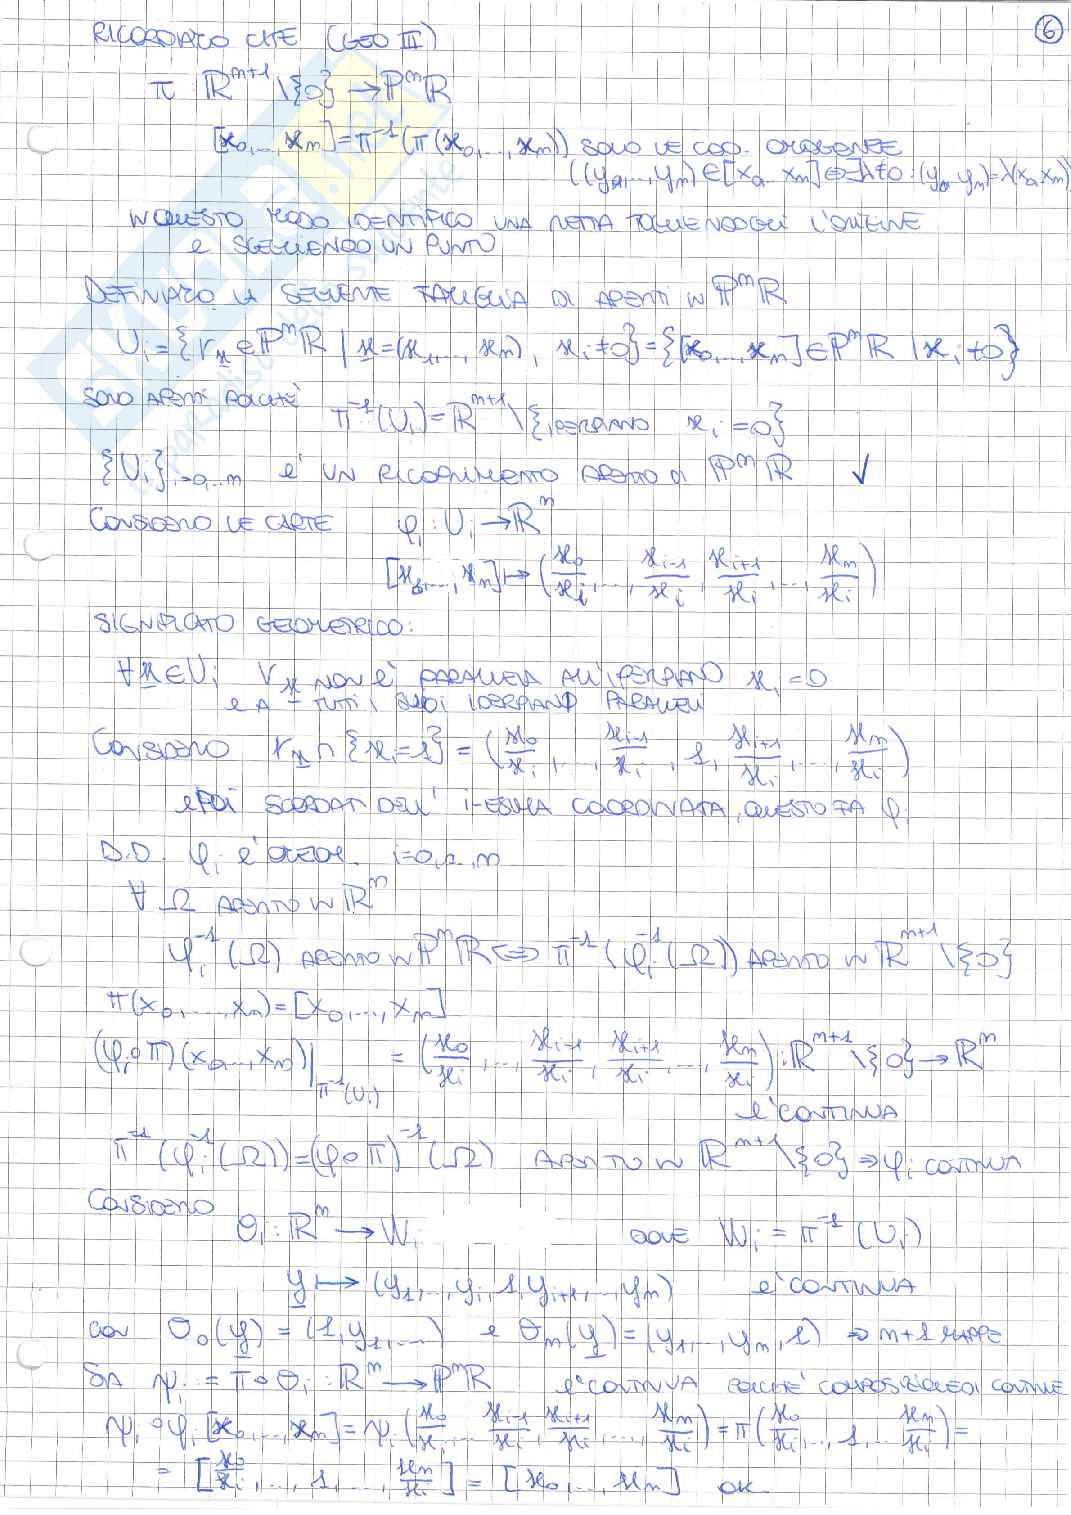 6
RICORDIAMO CHE (GEO III)
π : ℝⁿ⁺¹\{0} → ℙⁿℝ
[x₀,…,xₙ] = π⁻¹(π(x₀,…,xₙ)) SONO LE COO. OMOGENEE
((y₀,…,yₙ) ∈ [x₀…xₙ] ⇔ ∃λ≠0 : (y₀…yₙ) = λ(x₀…xₙ))
IN QUESTO MODO IDENTIFICO UNA RETTA TOGLIENDOGLI L'ORIGINE
E SCEGLIENDO UN PUNTO
DEFINIAMO LA SEGUENTE FAMIGLIA DI APERTI IN ℙⁿℝ
Uᵢ = {r_x ∈ ℙⁿℝ | x = (x₁,…,xₙ), xᵢ ≠ 0} = {[x₀,…,xₙ] ∈ ℙⁿℝ | xᵢ ≠ 0}
SONO APERTI POICHÈ π⁻¹(Uᵢ) = ℝⁿ⁺¹\{IPERPIANO xᵢ = 0}
{Uᵢ}ᵢ₌₀,…,ₙ E' UN RICOPRIMENTO APERTO DI ℙⁿℝ ✓
CONSIDERO LE CARTE φᵢ : Uᵢ → ℝⁿ
[x₀,…,xₙ] ↦ (x₀/xᵢ,…, xᵢ₋₁/xᵢ, xᵢ₊₁/xᵢ,…, xₙ/xᵢ)
SIGNIFICATO GEOMETRICO:
∀x ∈ Uᵢ r_x NON E' PARALLELA ALL'IPERPIANO xᵢ = 0
E A TUTTI I SUOI IPERPIANI PARALLELI
CONSIDERO r_x ∩ {xᵢ = 1} = (x₀/xᵢ,…, xᵢ₋₁/xᵢ, 1, xᵢ₊₁/xᵢ,…, xₙ/xᵢ)
E POI SCORDATI DELL' i-ESIMA COORDINATA, QUESTO FA φᵢ
D.D. φᵢ E' OMEOM. i=0,…,n
∀ Ω APERTO IN ℝⁿ
φᵢ⁻¹(Ω) APERTO IN ℙⁿℝ ⇔ π⁻¹(φᵢ⁻¹(Ω)) APERTO IN ℝⁿ⁺¹\{0}
π(x₀,…,xₙ) = [x₀,…,xₙ]
(φᵢ∘π)(x₀…,xₙ)|π⁻¹(Uᵢ) = (x₀/xᵢ,…, xᵢ₋₁/xᵢ, xᵢ₊₁/xᵢ,…, xₙ/xᵢ) : ℝⁿ⁺¹\{0} → ℝⁿ
E' CONTINUA
π⁻¹(φᵢ⁻¹(Ω)) = (φ∘π)⁻¹(Ω) APERTO IN ℝⁿ⁺¹\{0} ⇒ φᵢ CONTINUA
CONSIDERO
θᵢ : ℝⁿ → Wᵢ DOVE Wᵢ = π⁻¹(Uᵢ)
y ↦ (y₁,…,yᵢ,1,yᵢ₊₁,…,yₙ) E' CONTINUA
CON θ₀(y) = (1,y₁,…) E θₙ(y) = (y₁,…,yₙ,1) ⇒ n+1 MAPPE
SIA ψᵢ := π∘θᵢ : ℝⁿ → ℙⁿℝ E' CONTINUA POICHÈ COMPOSIZIONE DI CONTINUE
ψᵢ∘φᵢ[x₀,…,xₙ] = ψᵢ(x₀/xᵢ,… xᵢ₋₁/xᵢ, xᵢ₊₁/xᵢ,…, xₙ/xᵢ) = π(x₀/xᵢ,…,1,… xₙ/xᵢ) =
= [x₀/xᵢ,…,1,…, xₙ/xᵢ] = [x₀,…,xₙ] OK